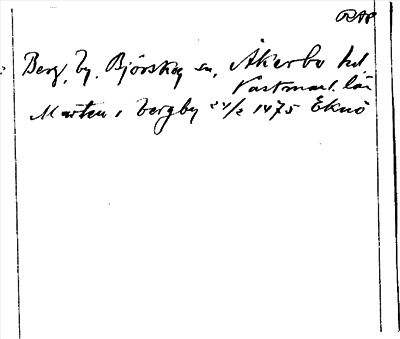 RAP
Berg, by. Björskog sn, Åkerbo hd
Västmanl. län
Marten i bergby 24/2 1475 Eknö